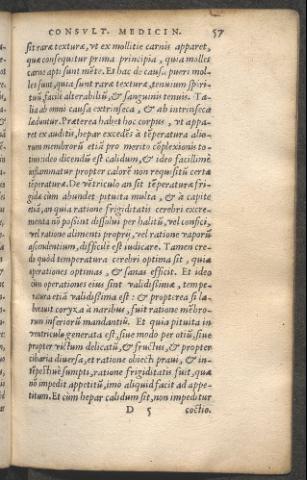 CONSVLT. MEDICIN. 57
sit raræ texturæ, vt ex mollitie carnis apparet,
quæ consequitur prima principia, quia molles
carne apti sunt mẽte. Et hac de causa pueri mol-
les sunt, quia sunt raræ texturæ, tenuium spiri-
tuũ, facile alterabiliũ, & sanguinis tenuis. Ta-
lia ab omni causa extrinseca, & ab intrinseca
læduntur. Præterea habet hoc corpus, vt appa-
ret ex auditis, hepar excedẽs à tẽperatura alio-
rum membrorũ etiã pro merito cõplexionis to-
tius: ideo dicendũ est calidum, & ideo facillimè
inflammatur propter calorẽ non requisitũ certæ
tẽperaturæ. De vẽtriculo an sit tẽperaturæ fri-
gidæ cùm abundet pituita multa, & à capite
etiã, an quia ratione frigiditatis cerebri excre-
menta nõ possint dissolui per halitũ, vel confici,
vel ratione alimenti proprij, vel ratione vaporũ
ascendentium, difficile est iudicare. Tamen cre-
do quòd temperatura cerebri optima sit, quia
operationes optimas, & sanas efficit. Et ideo
cùm operationes eius sint validißimæ, tempe-
ratura etiã validißima est: & propterea si la-
buit coryza à naribus, fuit ratione mẽbro-
rum inferiorũ mandantiũ. Et quia pituita in
ventriculo generata est, siue modo per otiũ, siue
propter victum delicatũ, & fructus, & propter
cibaria diuersa, et ratione obiecti praui, & in-
tẽpestiuè sumpti, ratione frigiditatis fuit, quæ
nõ impedit appetitũ, imò aliquid facit ad appe-
titum. Et cùm hepar calidum sit, non impeditur
D 5 coctio.